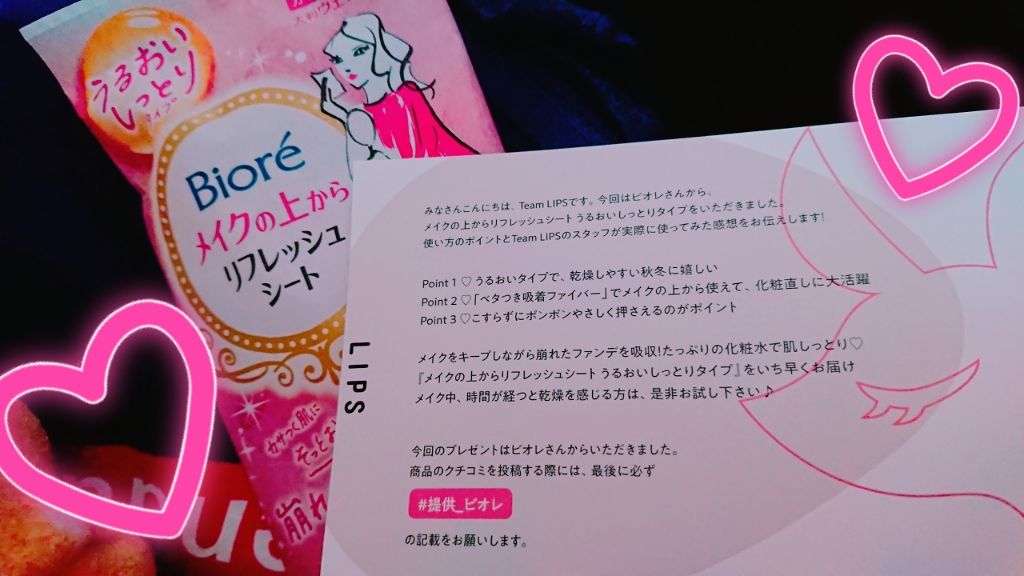 うるおい
しっとり
タイプ
Bioré
メイクの上から
リフレッシュ
シート
カサつく肌に
崩れ
LIPS
みなさんこんにちは、Team LIPSです。今回はビオレさんから、
メイクの上からリフレッシュシート うるおいしっとりタイプをいただきました。
使い方のポイントとTeam LIPSのスタッフが実際に使ってみた感想をお伝えします!
Point 1 ♡ うるおいタイプで、乾燥しやすい秋冬に嬉しい
Point 2 ♡「ベタつき吸着ファイバー」でメイクの上から使えて、化粧直しに大活躍
Point 3 ♡こすらずにポンポンやさしく押さえるのがポイント
メイクをキープしながら崩れたファンデを吸収!たっぷりの化粧水で肌しっとり♡
『メイクの上からリフレッシュシート うるおいしっとりタイプ』をいち早くお届け
メイク中、時間が経つと乾燥を感じる方は、是非お試し下さい♪
今回のプレゼントはビオレさんからいただきました。
商品のクチコミを投稿する際には、最後に必ず
#提供_ビオレ
の記載をお願いします。